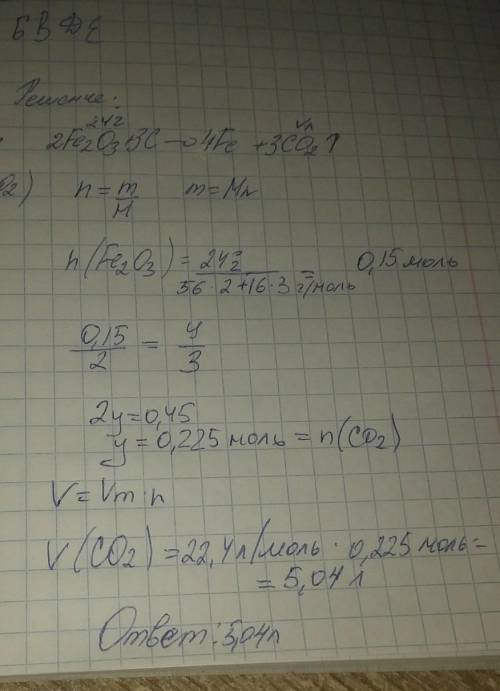 БВДЕ
Решение:
24г Vл
2Fe2O3+3C→4Fe+3CO2↑
O2) n=m/M m=Mn
n(Fe2O3)=24г/(56·2+16·3 г/моль)=0,15 моль
0,15/2=y/3
2y=0,45
y=0,225 моль=n(CO2)
V=Vm·n
V(CO2)=22,4л/моль·0,225 моль=
=5,04 л
Ответ: 5,04л